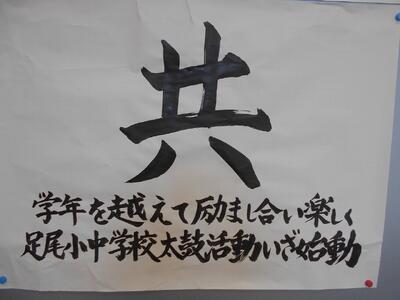 共
学年を越えて励まし合い楽しく
足尾小中学校太鼓活動いざ始動